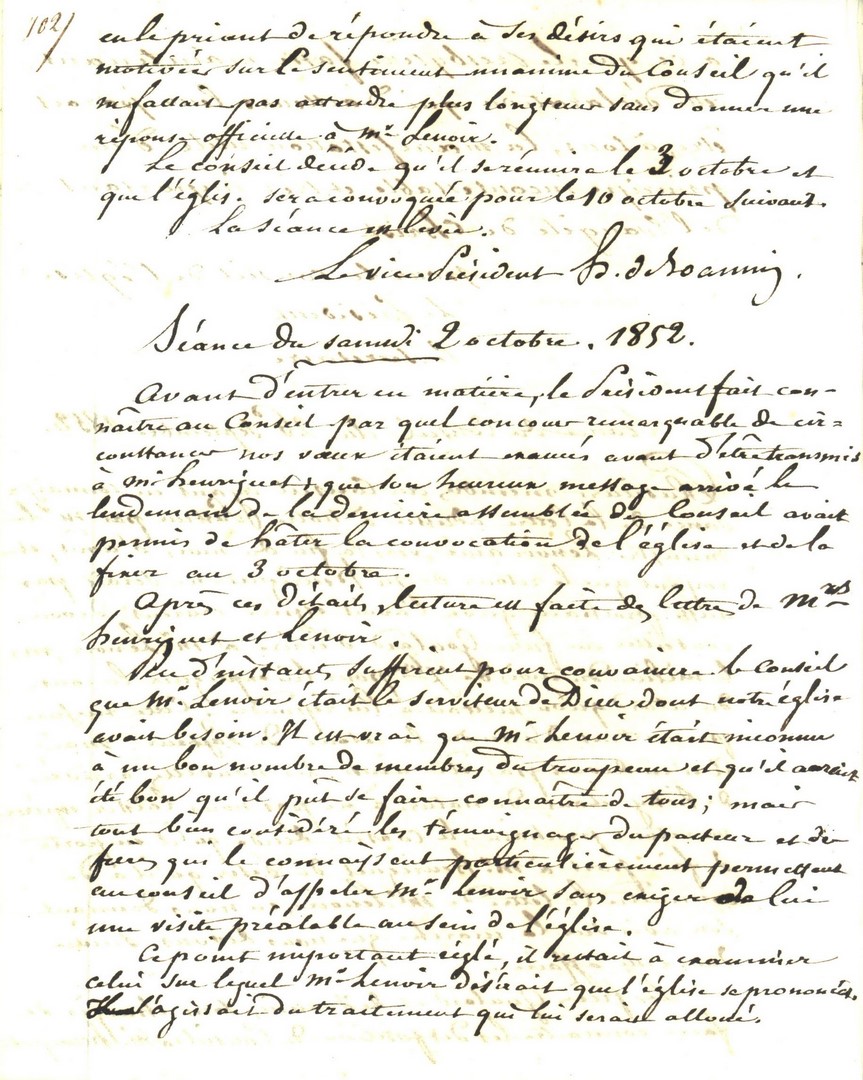 102/
en le priant de répondre à ses désirs qui étaient
motivés sur le sentiment unanime du Conseil qu'il
ne fallait pas attendre plus longtems sans donner une
réponse officielle à Mr Lenoir.
Le conseil décide qu'il se réunira le 3 octobre et
que l'église sera convoquée pour le 10 octobre suivant.
La séance est levée.
Le vice Président
Séance du samedi 2 octobre. 1852.
Avant d'entrer en matière, le Président fait con-
naître au Conseil par quel concours remarquable de cir=
constances nos vœux étaient exaucés avant d'être transmis
à Mr henriquet & que son heureux message arrivé le
lendemain de la dernière assemblée du Conseil avait
permis de hâter la convocation de l'église et de la
fixer au 3 octobre.
Après ces détails, lecture est faite des lettres de Mrs
henriquet et Lenoir.
Peu d'instants suffirent pour convaincre le Conseil
que Mr Lenoir était le serviteur de Dieu dont notre église
avait besoin. Il est vrai que Mr Lenoir était inconnu
à un bon nombre de membres du troupeau et qu'il aurait
été bon qu'il pût se faire connaître de tous; mais
tout bien considéré les témoignages du pasteur et des
frères qui le connaissent particulièrement permettent
au conseil d'appeler Mr Lenoir sans exiger de lui
une visite préalable au sein de l'église.
Ce point important réglé, il restait à examiner
celui sur lequel Mr Lenoir désirait que l'église se prononçât.
Il s'agissait du traitement qui lui serait alloué.